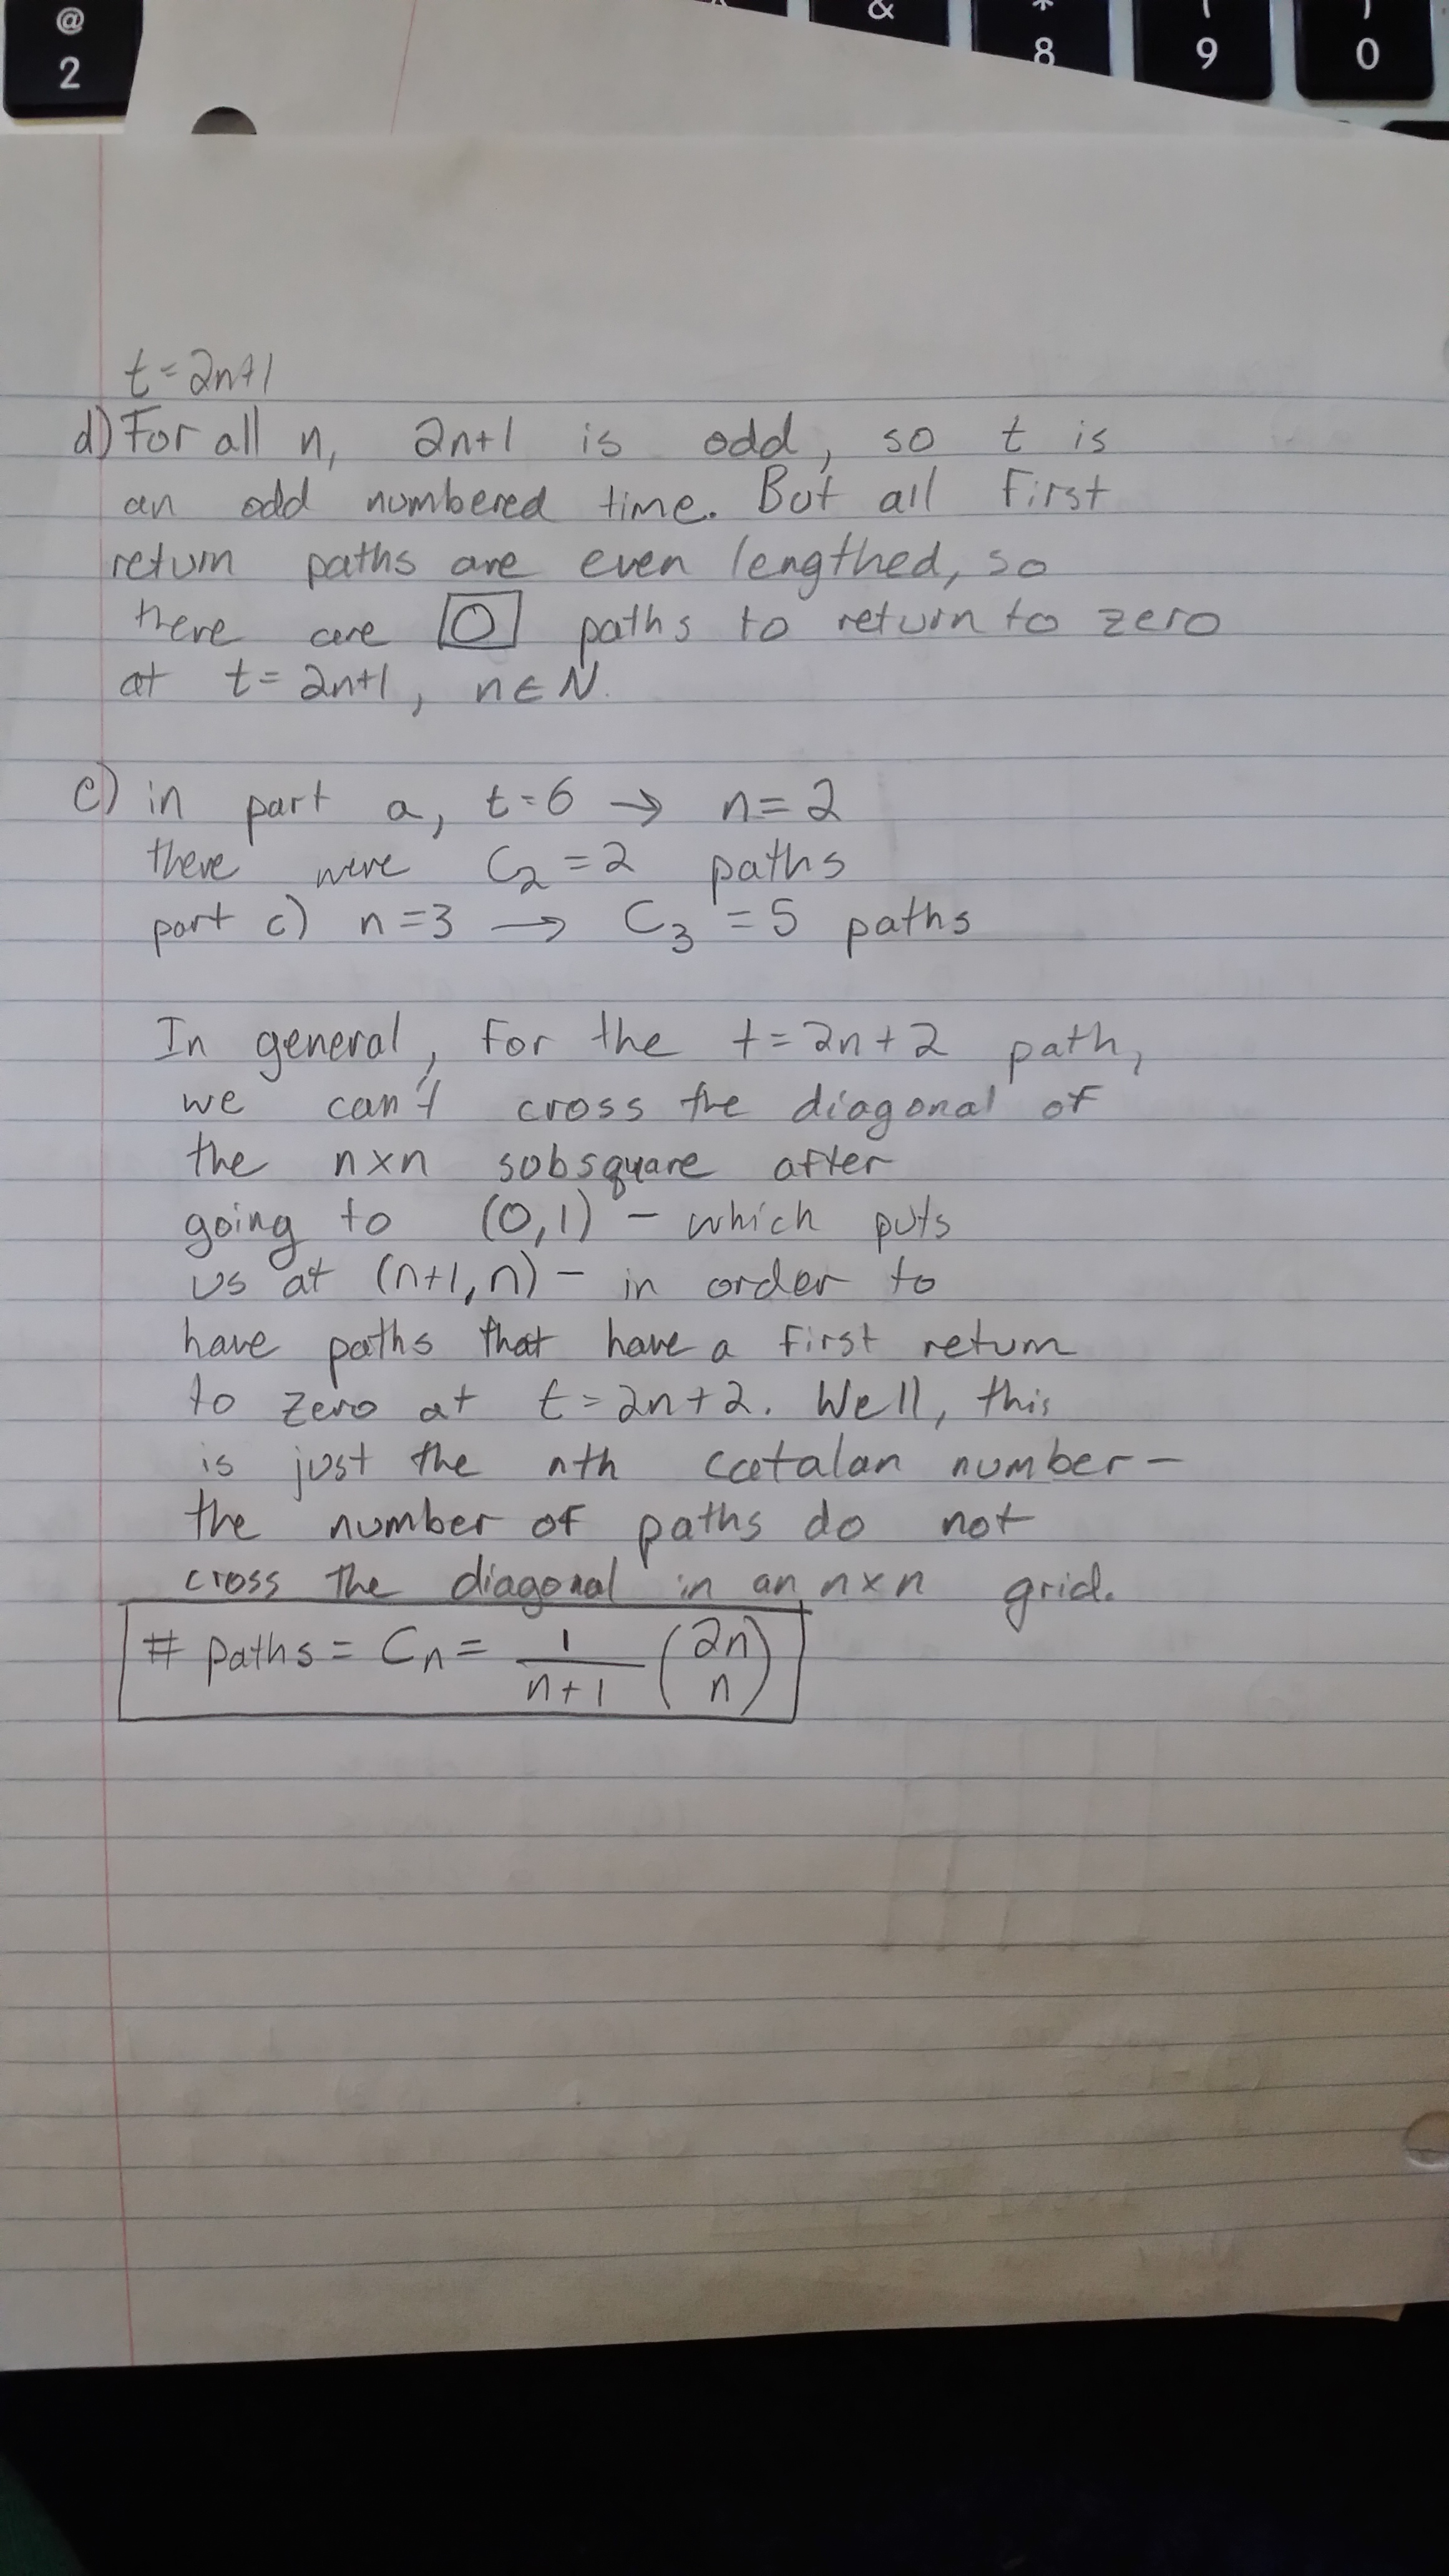 @
2
&
*
8
(
9
)
0
t=2n+1
d) For all n, 2n+1 is odd, so t is
an odd numbered time. But all first
return paths are even lengthed, so
there are 0 paths to return to zero
at t=2n+1, n∈N.
e) in part a, t=6 → n=2
there were C₂=2 paths
part c) n=3 → C₃=5 paths
In general, for the t=2n+2 path,
we can't cross the diagonal of
the n×n subsquare after
going to (0,1) – which puts
us at (n+1,n) – in order to
have paths that have a first return
to zero at t=2n+2. Well, this
is just the nth catalan number–
the number of paths do not
cross the diagonal in an n×n grid.
# paths = Cₙ = 1/(n+1) (2n n)